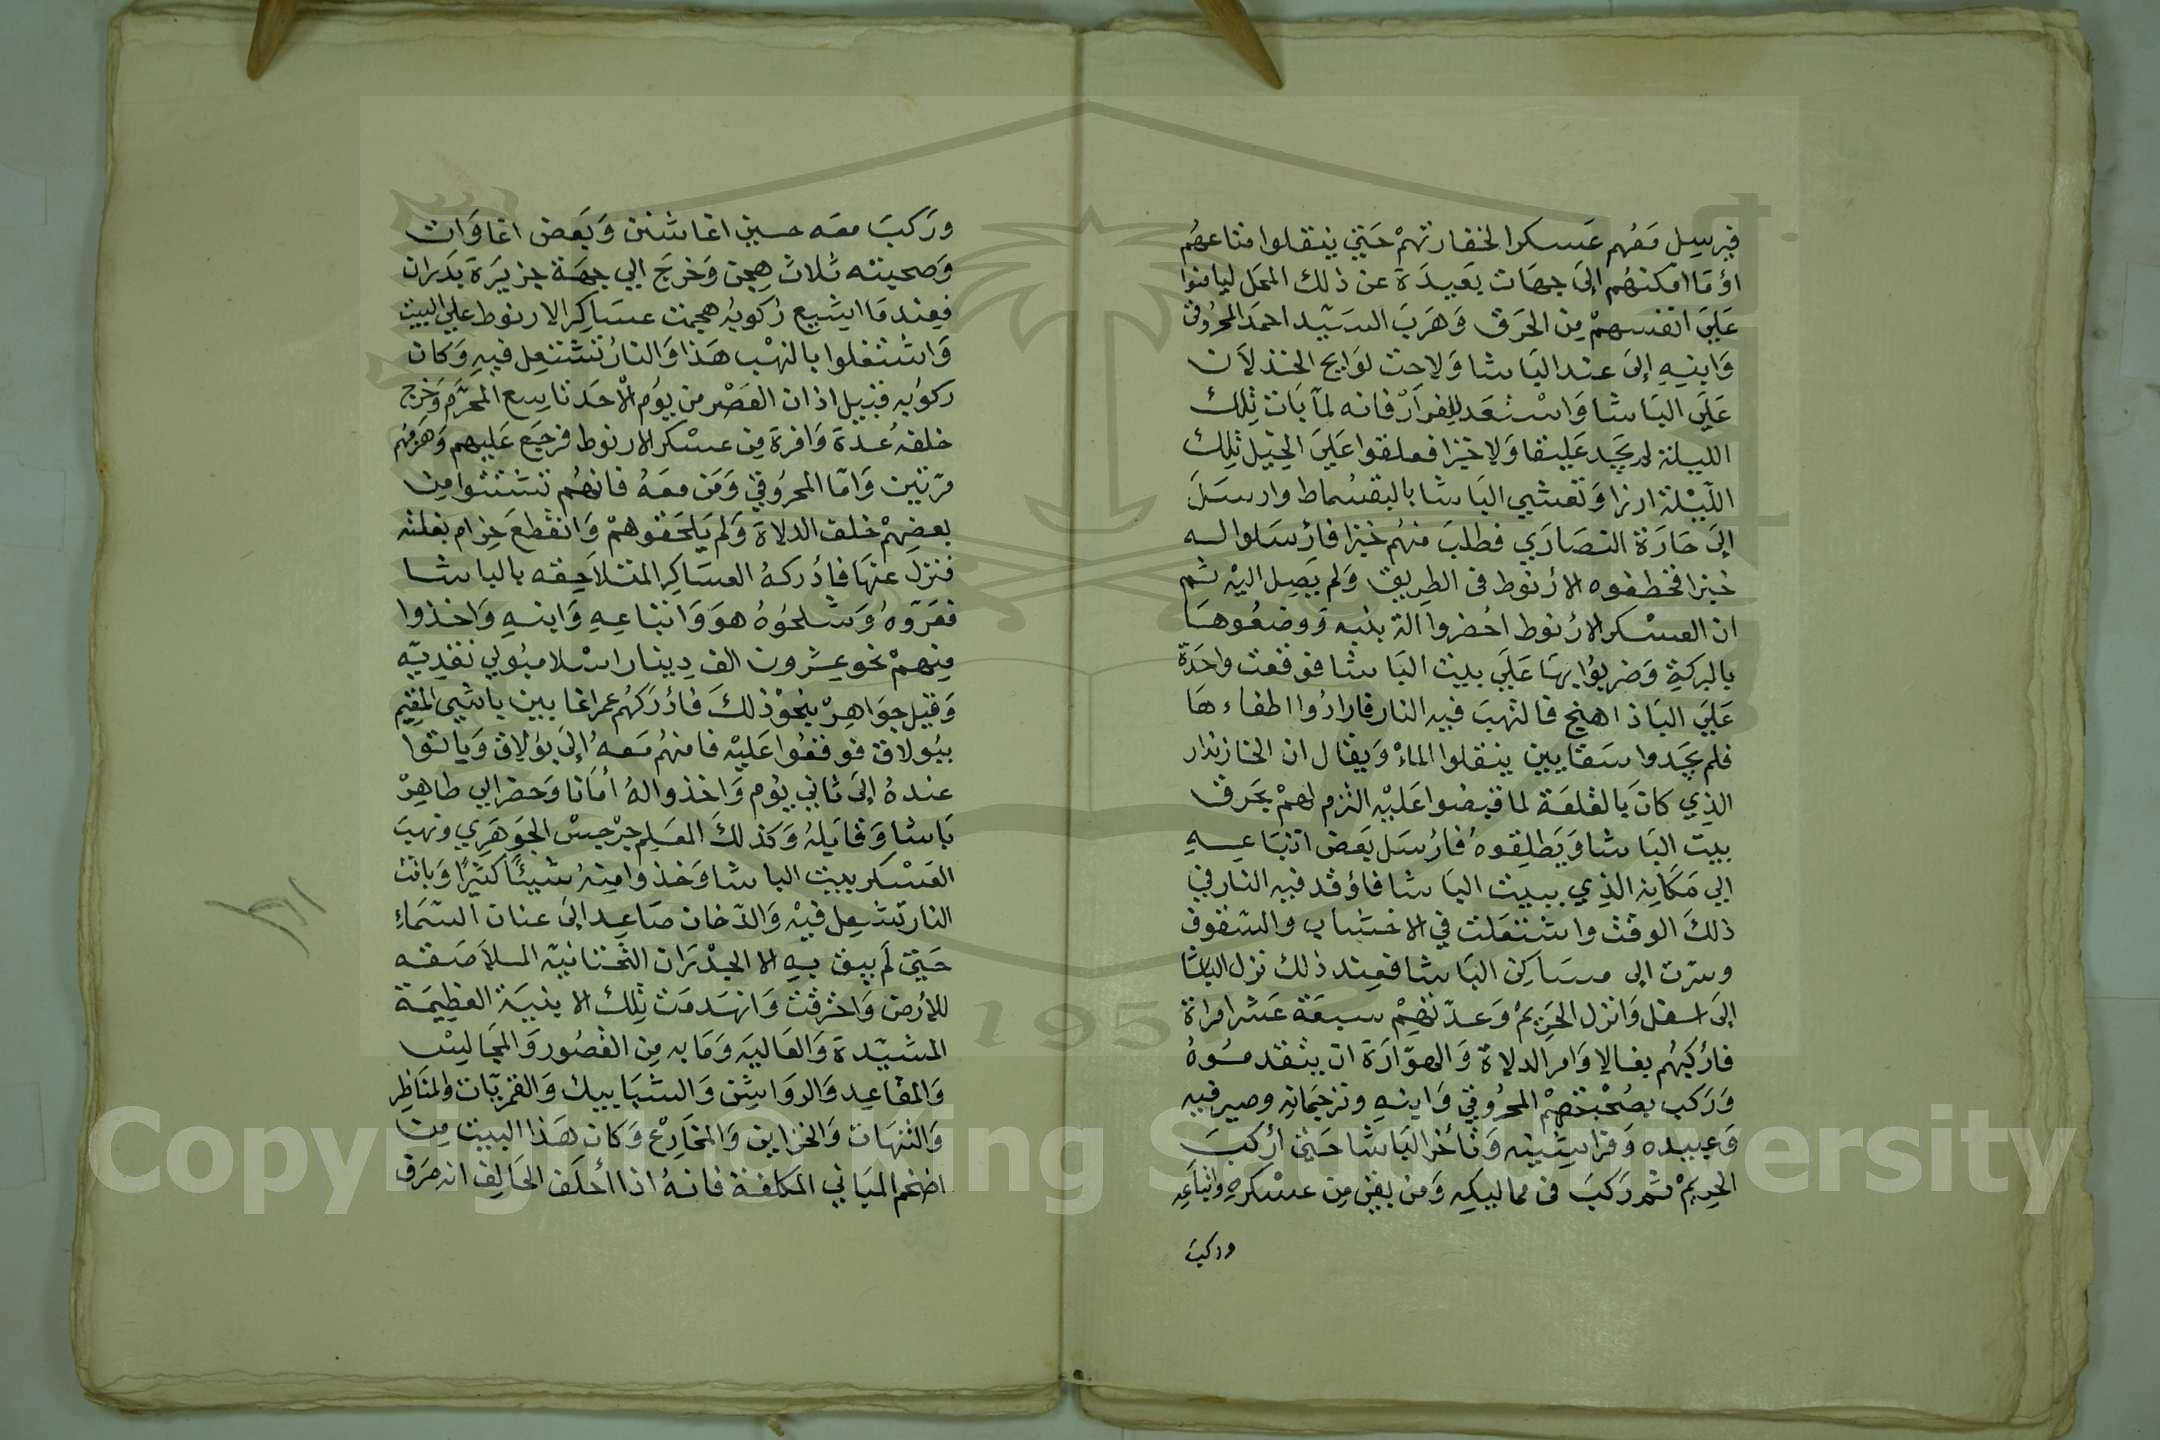 فيرسل معهم عسكرا لخفارتهم حتى ينقلوا متاعهم
او ما امكنهم إلى جهات بعيدة عن ذلك المحل ليامنوا
على انفسهم من الحرق وهرب السيد احمد المحروقى
وابنه إلى عند الباشا ولاحت لوايح الخذلان
على الباشا واستعد للفرار فانه لما بات تلك
الليلة لم يجد عليقا ولا خبزا فعلقوا على الخيل تلك
الليلة ارزا وتعشى الباشا بالبقسماط وارسل
إلى حارة النصارى فطلب منهم خبزا فارسلوا له
خبزا فخطفوه الارنوط فى الطريق ولم يصل اليه ثم
ان العسكر الارنوط احضروا الة بنبه ووضعوها
بالبركة وضربوا بها على بيت الباشا فوقعت واحدة
على الباذاهنج فالتهب فيه النار فارادوا اطفاءها
فلم يجدوا سقايين ينقلوا الماء ويقال ان الخازندار
الذي كان بالقلعة لما قبضوا عليه التزم لهم بحرق
بيت الباشا ويطلقوه فارسل بعض اتباعه
الي مكانه الذي ببيت الباشا فاوقد فيه النار في
ذلك الوقت واشتعلت في الاخشاب والسقوف
وسرت الى مساكن الباشا فعند ذلك نزل الباشا
إلى اسفل وانزل الحريم وعدتهم سبعة عشر امراة
فاركبهم بغالا وامر الدلاة والهوارة ان يتقدموه
وركب بصحبتهم المحروقي وابنه وترجمانه وصيرفيه
وعبيده وفراشينه وتأخر الباشا حتى أركب
الحريم ثم ركب فى مماليكه ومن بقى من عسكره واتباعه
وركب
وركب معه حسين اغا شنن وبعض اغاوات
وصحبته ثلاث هجن وخرج الى جهة جزيرة بدران
فعند ما اشيع ركوبه هجمت عساكر الارنوط على البيت
واشتغلوا بالنهب هذا والنار تشتعل فيه وكان
ركوبه قبيل اذان العصر من يوم الأحد تاسع المحرم وخرج
خلفه عدة وافرة من عسكر الارنوط فرجع عليهم وهزمهم
مرتين واما المحروقي ومن معه فانهم تشتتوا من
بعضهم خلف الدلاة ولم يلحقوهم وانقطع حزام بغلته
فنزل عنها فادركه العساكر المتلاحقه بالباشا
فعروه وشلحوه هو واتباعه وابنه واخذوا
منهم نحو عشرون الف دينار اسلامبولي نقديه
وقيل جواهر بنحو ذلك فادركهم عمر اغا بين باشي المقيم
ببولاق فوقعوا عليه فامنهم معه إلى بولاق وباتوا
عنده إلى ثاني يوم واخذوا له أمانا وحضر الي طاهر
باشا وقابله وكذلك المعلم جرجس الجوهري ونهب
العسكر بيت الباشا وخذوا منه شيئا كثيرا وباتت
النار تشعل فيه والدخان صاعد إلى عنان السماء
حتى لم يبق به الا الجدران التحتانيه الملاصقه
للأرض واحترقت وانهدمت تلك الابنية العظيمة
المشيدة والعاليه وما به من القصور والمجالس
والمقاعد والرواشن والشبابيك والقمريات والمناظر
والتنهات والخزاين والمخارع وكان هذا البيت من
اضخم المباني المكلفة فانه اذا أحلف الحالف انه صرف
Copyright © King Saud University
1957